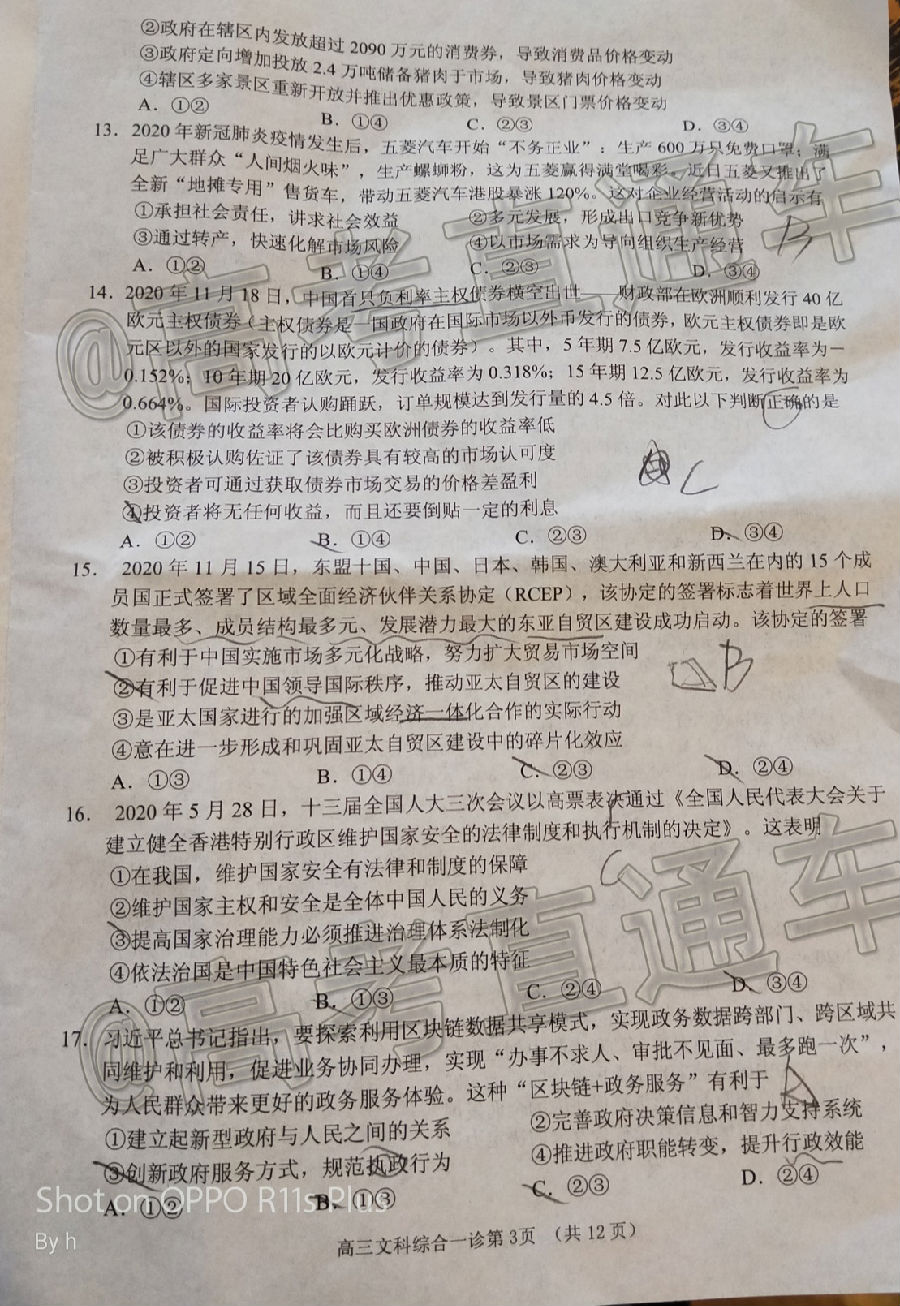 ②政府在辖区内发放超过2090万元的消费券，导致消费品价格变动
③政府定向增加投放2.4万吨储备猪肉于市场，导致猪肉价格变动
④辖区多家景区重新开放并推出优惠政策，导致景区门票价格变动
A．①② B．①④ C．②③ D．③④
13．2020年新冠肺炎疫情发生后，五菱汽车开始“不务正业”：生产600万只免费口罩；满
足广大群众“人间烟火味”，生产螺蛳粉，这为五菱赢得满堂喝彩。近日五菱又推出了
全新“地摊专用”售货车，带动五菱汽车港股暴涨120%。这对企业经营活动的启示有
①承担社会责任，讲求社会效益 ②多元发展，形成出口竞争新优势
③通过转产，快速化解市场风险 ④以市场需求为导向组织生产经营
B
A．①② B．①④ C．②③ D．③④
14．2020年11月18日，中国首只负利率主权债券横空出世——财政部在欧洲顺利发行40亿
欧元主权债券（主权债券是一国政府在国际市场以外币发行的债券，欧元主权债券即是欧
元区以外的国家发行的以欧元计价的债券）。其中，5年期7.5亿欧元，发行收益率为－
0.152%；10年期20亿欧元，发行收益率为0.318%；15年期12.5亿欧元，发行收益率为
0.664%。国际投资者认购踊跃，订单规模达到发行量的4.5倍。对此以下判断正确的是
①该债券的收益率将会比购买欧洲债券的收益率低
②被积极认购佐证了该债券具有较高的市场认可度
③投资者可通过获取债券市场交易的价格差盈利
C
④投资者将无任何收益，而且还要倒贴一定的利息
A．①② B．①④ C．②③ D．③④
15．2020年11月15日，东盟十国、中国、日本、韩国、澳大利亚和新西兰在内的15个成
员国正式签署了区域全面经济伙伴关系协定（RCEP），该协定的签署标志着世界上人口
数量最多、成员结构最多元、发展潜力最大的东亚自贸区建设成功启动。该协定的签署
①有利于中国实施市场多元化战略，努力扩大贸易市场空间
②有利于促进中国领导国际秩序，推动亚太自贸区的建设
B
③是亚太国家进行的加强区域经济一体化合作的实际行动
④意在进一步形成和巩固亚太自贸区建设中的碎片化效应
A．①③ B．①④ C．②③ D．②④
16．2020年5月28日，十三届全国人大三次会议以高票表决通过《全国人民代表大会关于
建立健全香港特别行政区维护国家安全的法律制度和执行机制的决定》。这表明
①在我国，维护国家安全有法律和制度的保障
②维护国家主权和安全是全体中国人民的义务
③提高国家治理能力必须推进治理体系法制化
④依法治国是中国特色社会主义最本质的特征
A．①② B．①③ C．②④ D．③④
17．习近平总书记指出，要探索利用区块链数据共享模式，实现政务数据跨部门、跨区域共
同维护和利用，促进业务协同办理，实现“办事不求人、审批不见面、最多跑一次”，
为人民群众带来更好的政务服务体验。这种“区块链+政务服务”有利于
①建立起新型政府与人民之间的关系 ②完善政府决策信息和智力支持系统
③创新政府服务方式，规范执政行为 ④推进政府职能转变，提升行政效能
A．①② B．①③ C．②③ D．②④
高三文科综合一诊第3页 （共12页）
@高考直通车
@高考直通车
Shot on OPPO R11s Plus
By h